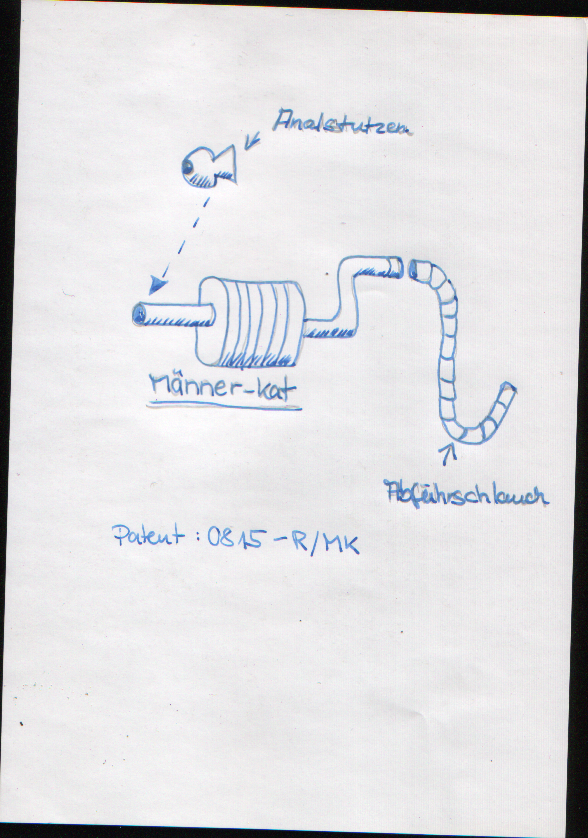 Analstutzen
Männer-Kat
Abführschlauch
Patent: 0815-R/MK